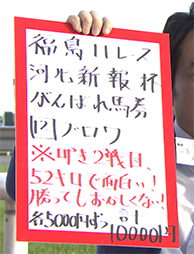 福島11レース
河北新報杯
がんばれ馬券
⑫ブロワ
※叩き2戦目、
52キロで面白い!
勝ってもおかしくない!
各5000円ずつ 計
10000円